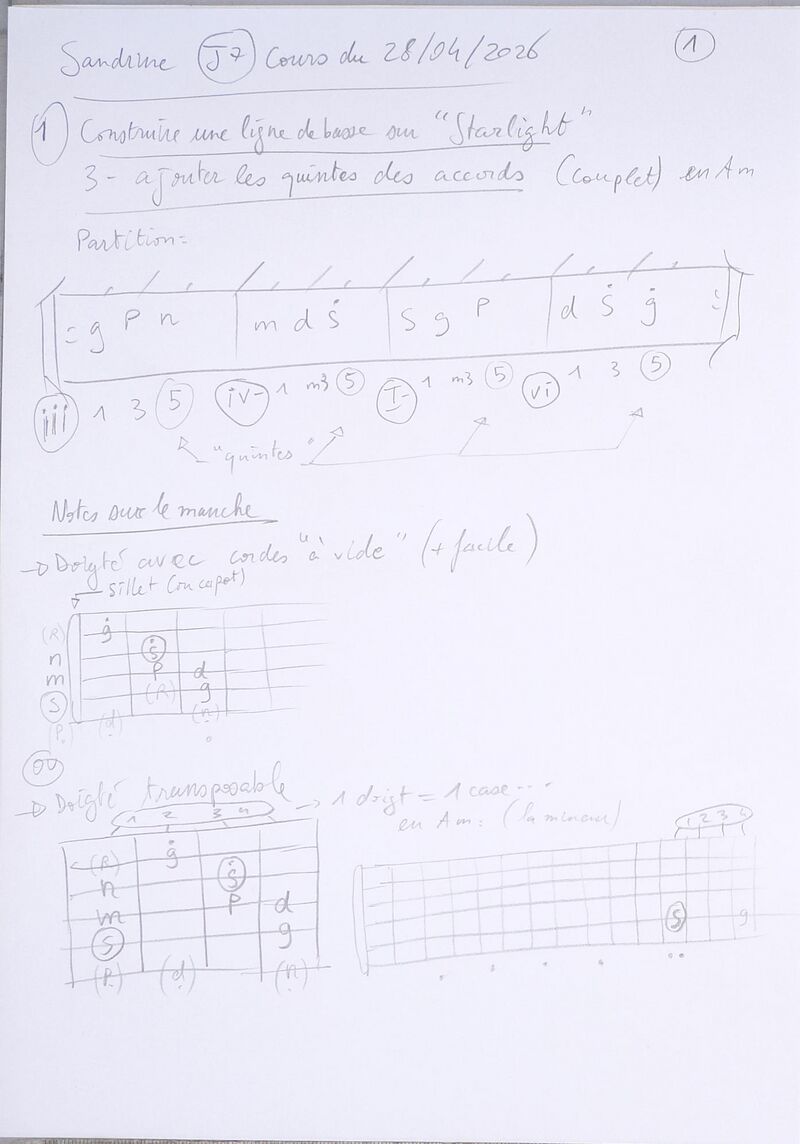 Sandrine J7 Cours du 28/04/2026 1
1 Construire une ligne de basse sur "Starlight"
3- ajouter les quintes des accords (couplet) en Am
Partition=
g P n m d ṡ S g P d ṡ ġ
iii 1 3 5 iv- 1 m3 5 I- 1 m3 5 vi 1 3 5
"quintes"
Notes sur le manche
→ Doigté avec cordes "à vide" (+ facile)
sillet (ou capot)
(R) ġ
n ṡ
m P d
S (R) g
(P) (d) (n)
ou
→ Doigté transposable → 1 doigt = 1 case...
en Am: (la mineur)
1 2 3 4
1 2 3 4
(R) ġ
n ṡ
m P d
S g
(P) (d) (n)
S g